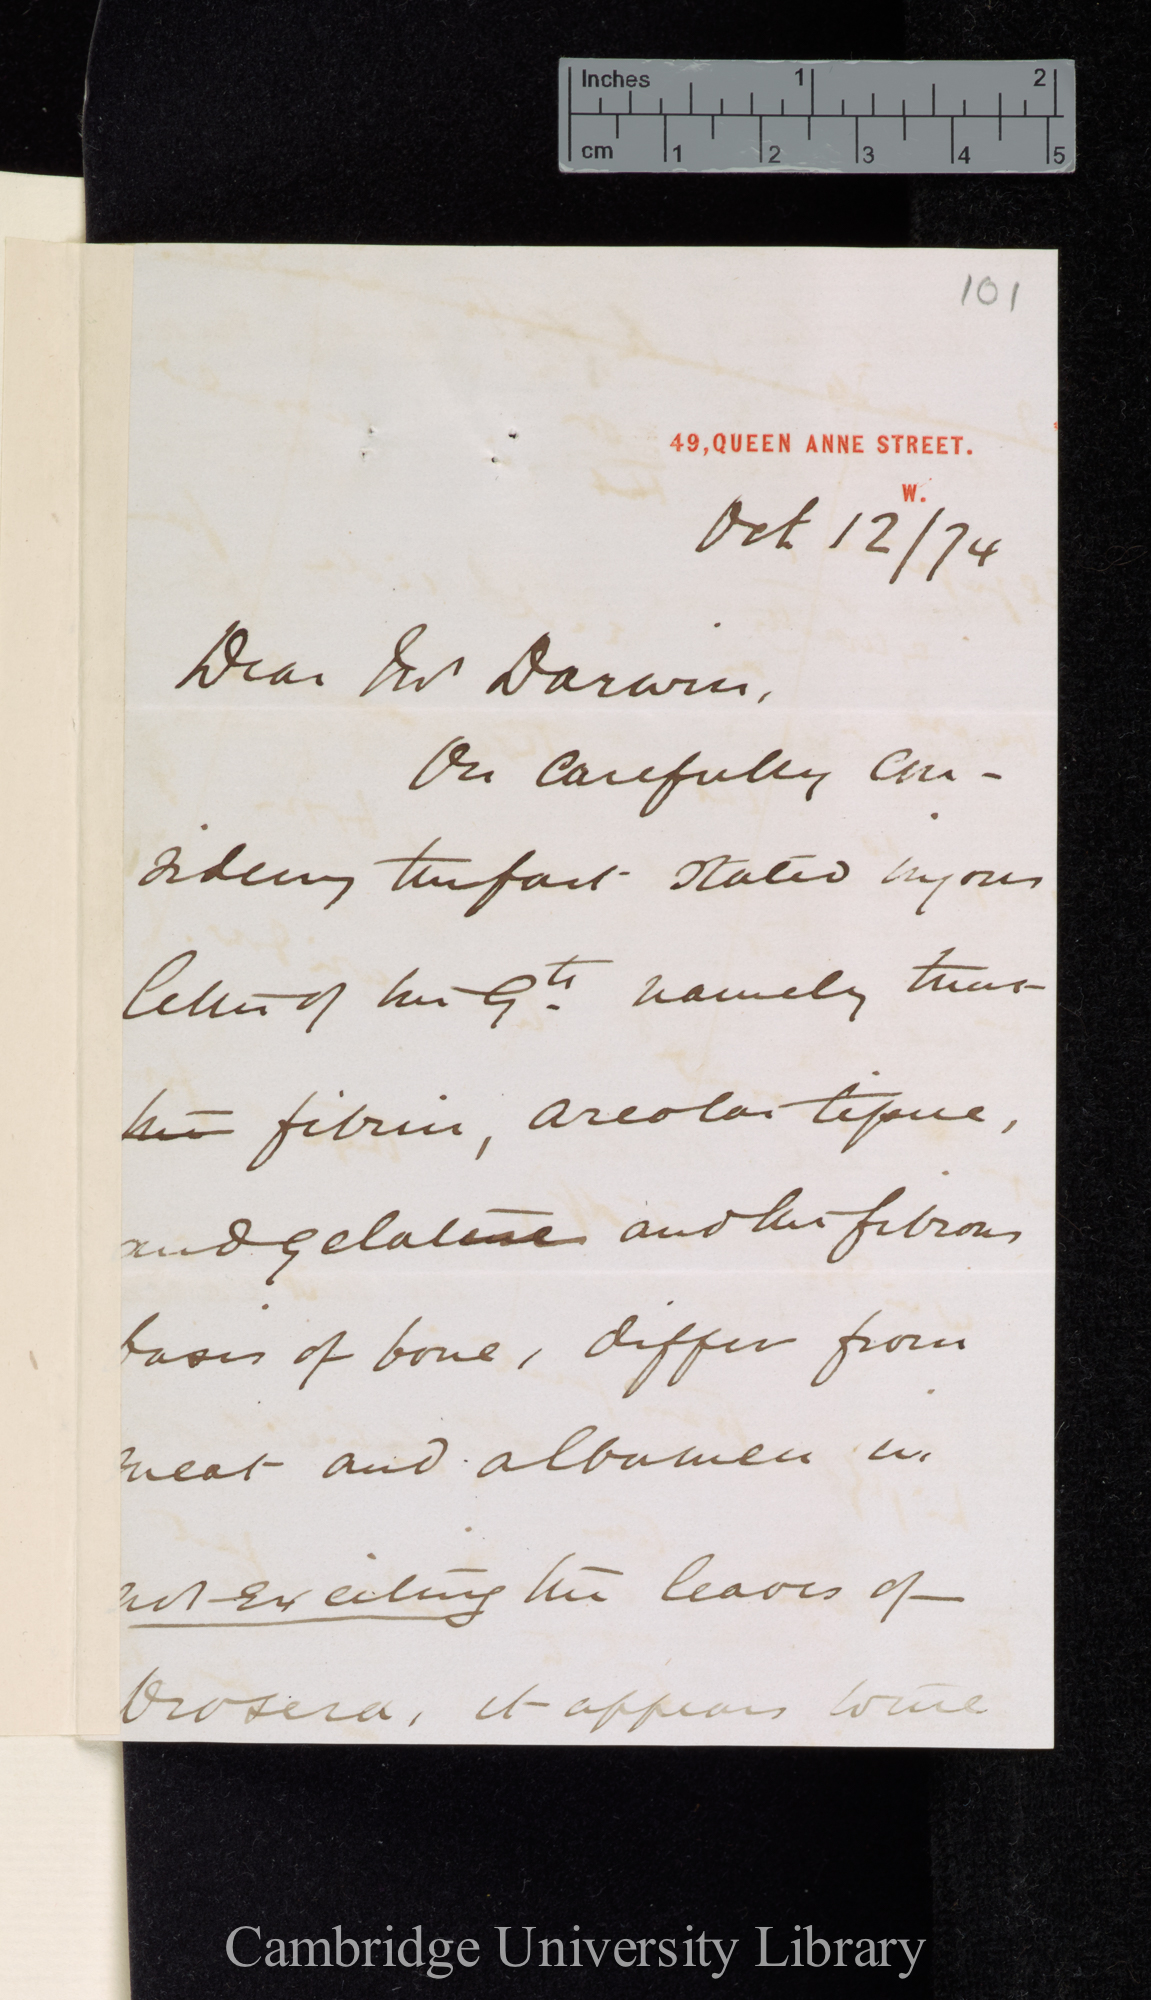 Inches 1 2
cm 1 2 3 4 5
101
49, QUEEN ANNE STREET.
W.
Oct 12/74
Dear Mr Darwin,
On carefully con-
sidering the fact stated in your
letter of the 9th. namely that
the fibrin, areolar tissue,
and gelatine and the fibrous
basis of bone, differ from
meat and albumen in
not exciting the leaves of
Drosera, it appears to me
Cambridge University Library